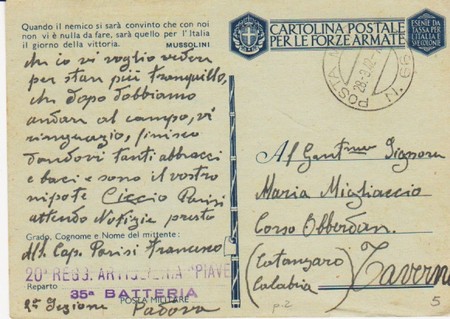 Quando il nemico si sarà convinto che con noi
non vi è nulla da fare, sarà quello per l'Italia
il giorno della vittoria. MUSSOLINI
CARTOLINA POSTALE
PER LE FORZE ARMATE
ESENTE DA
TASSA PER
L'ITALIA E
SPEDIZIONE
POSTA
N. 66
io vi voglio vedere
per star più tranquillo,
che dopo dobbiamo
andar al campo, vi
ringrazio, finisco
dandovi tanti abbracci
e baci e sono il vostro
nipote Ciccio Parisi
attendo Notizie presto
Grado, Cognome e Nome del mittente:
All. Cap. Parisi Francesco
20° REGG. ARTIGLIERIA "PIAVE"
Reparto
35ª BATTERIA
POSTA MILITARE
2ª Sezione Padova
Al Gent.mo Signora
Maria Migliaccio
Corso Obberdan.
(Catanzaro)
Calabria) Taverna
p.2
5